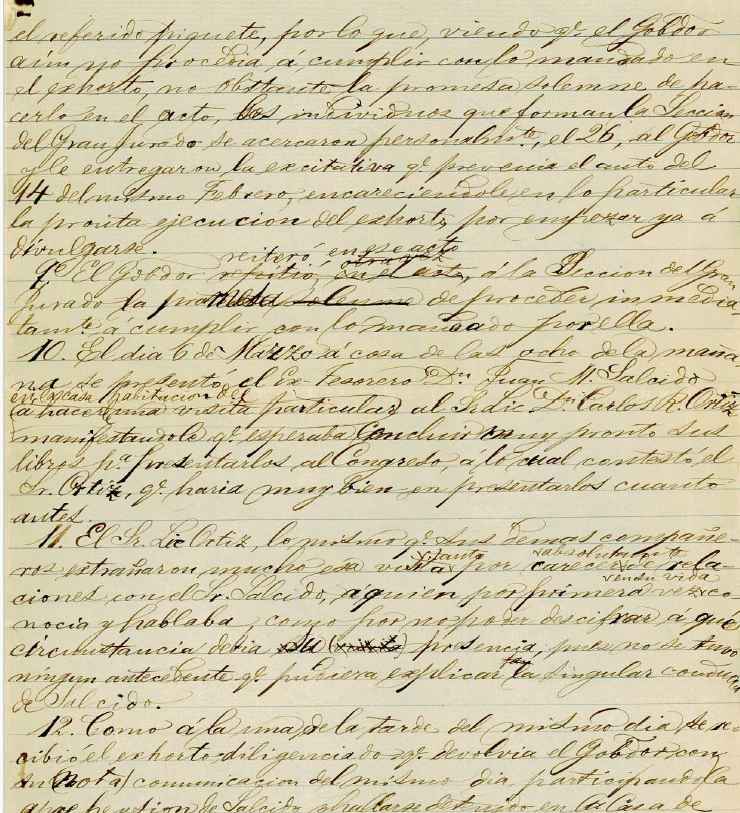 el referido piquete, por lo que, viendo qe. el Gobdor
aún no procedia, a cumplir con lo mandado en
el exhorto, no obstante la promesa solemne de ha-
cerlo en el acto, los individuos que forman la Seccion
del Gran Jurado se acercaron personalmte., el 26, al Gobdor
y le entregaron la excitativa qe. prevenia el auto del
14 del mismo Febrero, encareciendole en lo particular
la pronta ejecucion del exhorto, por empezar ya á
divulgarse.
reiteró en ese acto
otra vez
9ª El Gobdor repitió, en el acto, á la Seccion del Gran
Jurado la promesa solemne de proceder, inmedia-
tamte. á cumplir con lo mandado por ella.
10. El dia 6 de Marzo á cosa de las ocho de la maña-
na se presentó el Ex-Tesorero Dn. Juan M. Salcido
en la casa habitacion del
á hacer una visita particular al Sr. Lic. Dn. Carlos R. Ortiz
manifestandole qe. esperaba concluir muy pronto sus
libros pa. presentarlos al Congreso, á lo cual contestó el
Sr. Ortiz, qe. haria muy bien en presentarlos cuanto
antes.
11. El Sr. Lic Ortiz, lo mismo qe. sus demas compañe-
tanto absolutamente
ros extrañaron mucho esa visita por carecer de rela-
en su vida
ciones con el Sr. Salcido, á quien por primera vez co-
nocia y hablaba, como por no poder descifrar á qué
circunstancia debia su presencia, pues no se tuvo
ningun antecedente qe. pudiera explicar tan singular conducta
de Salcido.
12. Como á la una de la tarde del mismo dia, se re-
cibió el exhorto diligenciado qe. devolvia el Gobdor con
su nota comunicacion del mismo dia, participando la
aprehension de Salcido y hallarse detenido en la Casa de